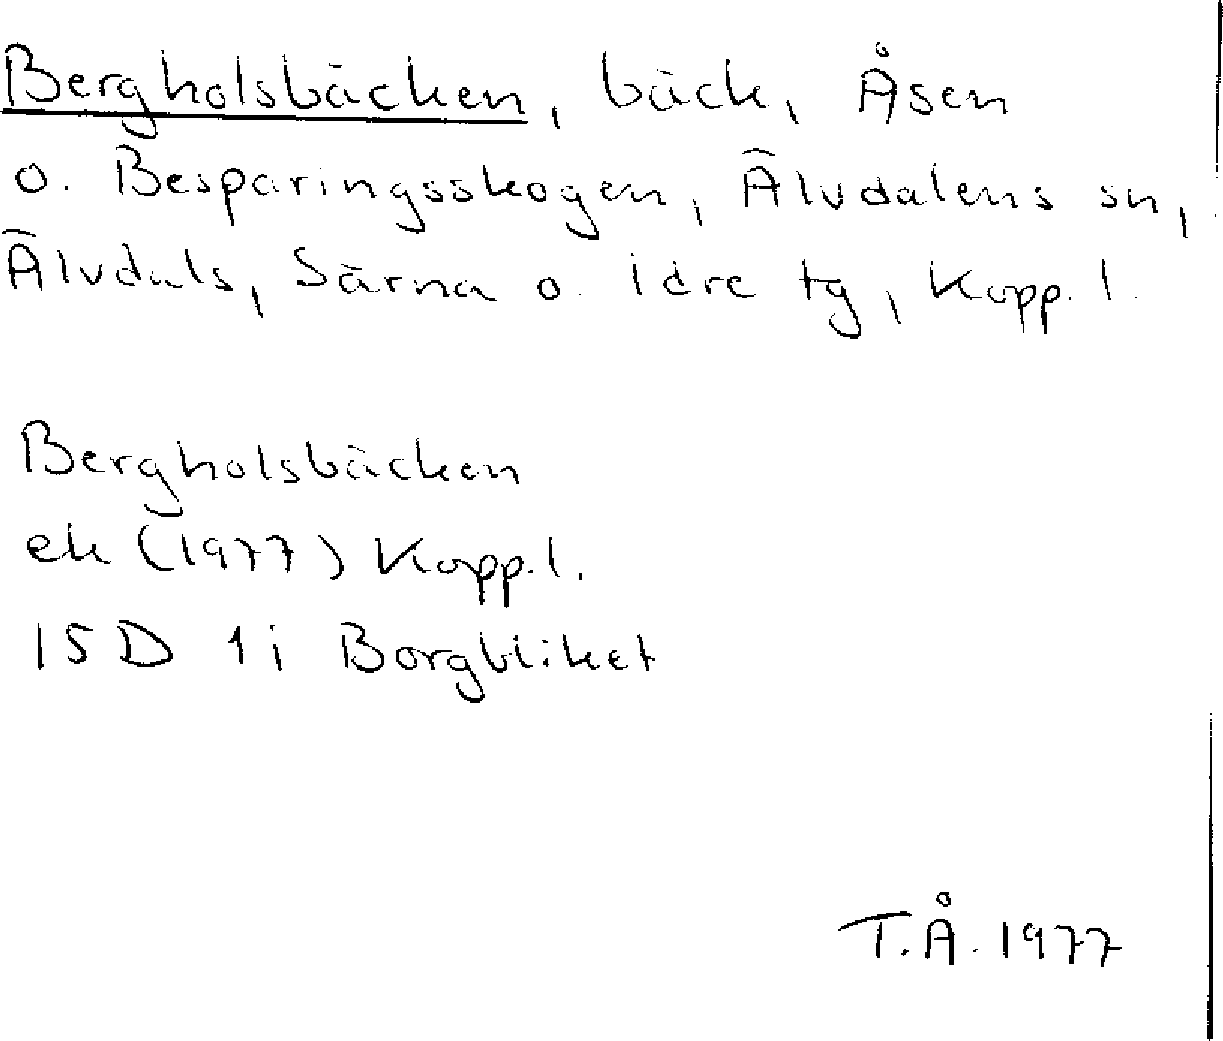 Bergholsbäcken, bäck, Åsen
o. Besparingsskogen, Älvdalens sn,
Älvdals, Särna o. Idre tg, Kopp. l.
Bergholsbäcken
ek (1977) Kopp. l.
15D 1i Borgbliket
T.Å. 1977